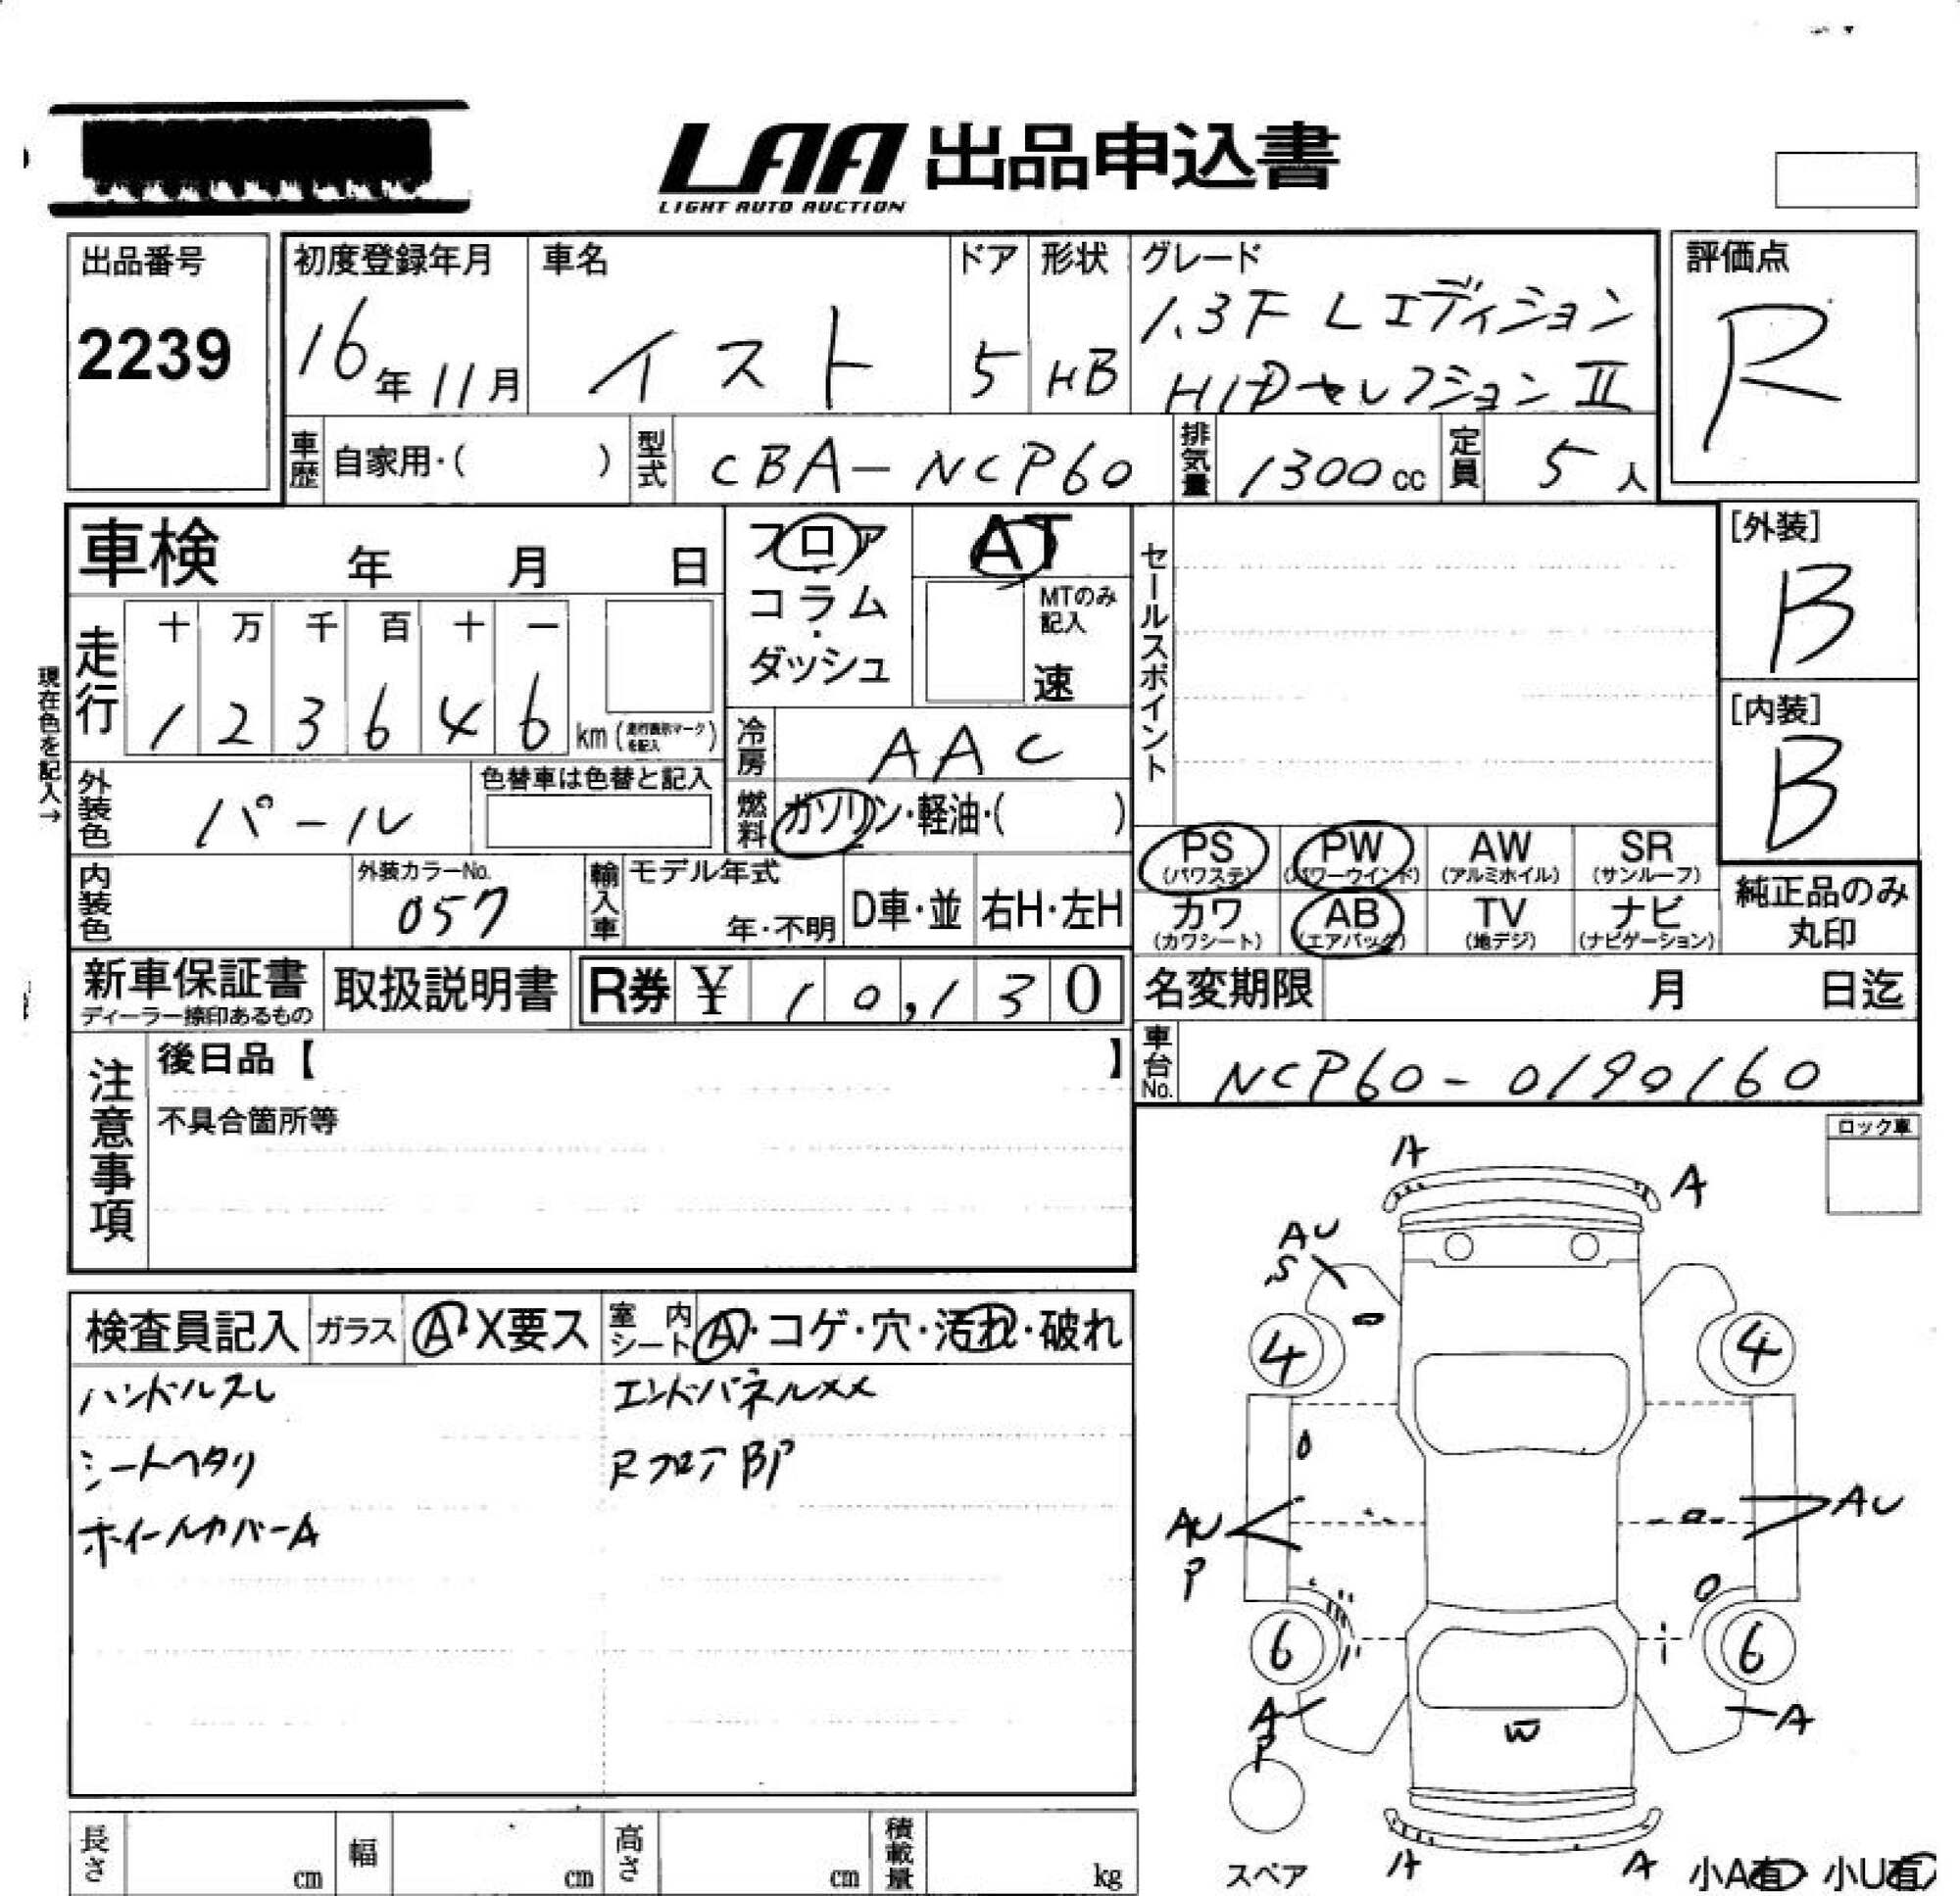 LAA 出品申込書
LIGHT AUTO AUCTION
出品番号
2239
初度登録年月
16年11月
車名
イスト
ドア
5
形状
HB
グレード
1.3F Lエディション
HIDセレクションⅡ
評価点
R
車歴
自家用・(　　)
型式
CBA-NCP60
排気量
1300cc
定員
5人
車検　年　月　日
フロア・コラム・ダッシュ
AT
MTのみ記入
速
セールスポイント
[外装]
B
[内装]
B
現在色を記入→
走行
十 万 千 百 十 一
1 2 3 6 4 6 km
冷房
AAC
外装色
パール
色替車は色替と記入
燃料
ガソリン・軽油・(　　)
内装色
外装カラーNo.
057
輸入車
モデル年式
年・不明
D車・並
右H・左H
PS (パワステ)
PW (パワーウインド)
AW (アルミホイル)
SR (サンルーフ)
カワ (カワシート)
AB (エアバック)
TV (地デジ)
ナビ (ナビゲーション)
純正品のみ
丸印
新車保証書
ディーラー捺印あるもの
取扱説明書
R券 ¥ 10,130
名変期限　月　日迄
車台No.
NCP60-0190160
注意事項
後日品【　　】
不具合箇所等
ロック車
検査員記入
ガラス
A・X要ス
室内シート
A・コゲ・穴・汚れ・破れ
ハンドルスレ
エンドパネルXX
シートヘタリ
RフロアBP
ホイールカバーA
A
A
AU
S
4
4
AU
P
AU
6
6
A
P
A
W
スペア
A
A
小A有 小U有
長さ　cm
幅　cm
高さ　cm
積載量　kg